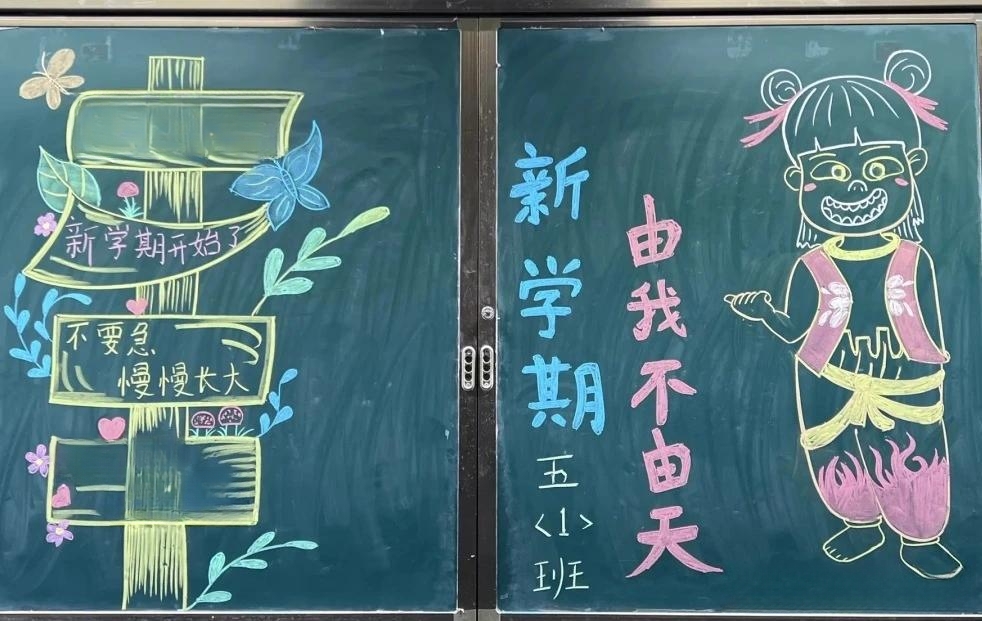 新学期开始了
不要急
慢慢长大
新学期
五<1>班
由我不由天